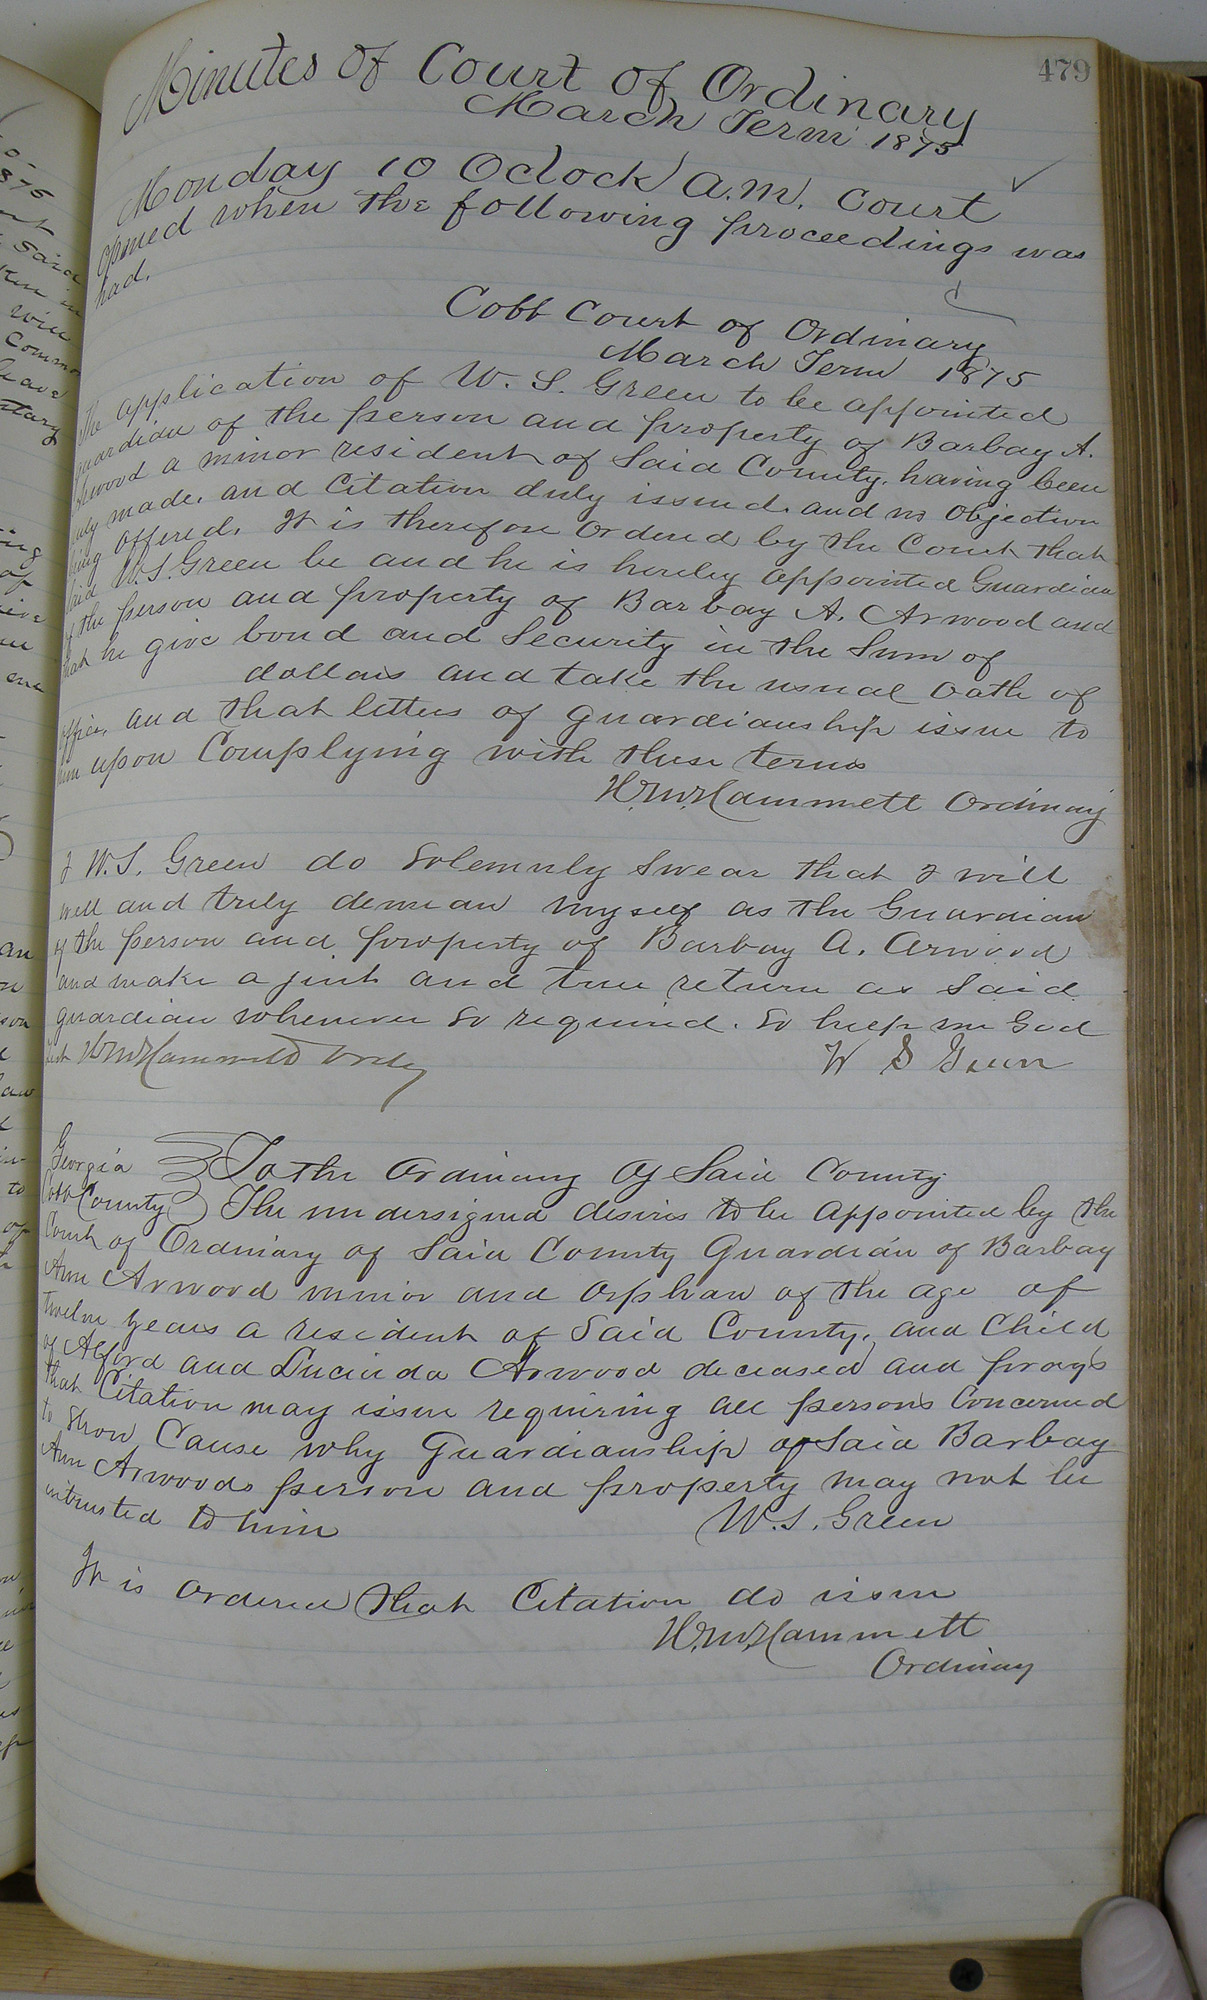 479
Minutes of Court of Ordinary
March Term 1875
Monday 10 Oclock a.m. Court
opened when the following proceedings was
had.
Cobb Court of Ordinary
March Term 1875
The application of W. S. Green to be appointed
guardian of the person and property of Barbay A.
Arwood a minor resident of Said County, having been
duly made, and Citation duly issued, and no Objection
being offered. It is therefore Ordered by the Court that
Said W. S. Green be and he is hereby appointed Guardian
of the person and property of Barbay A. Arwood and
that he give bond and Security in the Sum of
dollars and take the usual Oath of
office, and that letters of guardianship issue to
him upon Complying with these terms
H. M. Hammett Ordinary
I W. S. Green do Solemnly Swear that I will
well and truly demean myself as the Guardian
of the person and property of Barbay A. Arwood
and make a just and true return as Said
guardian whenever So required. So help me God
Test H M Hammett Ordy
W S Green
Georgia
Cobb County
To the Ordinary Of Said County
The undersigned desires to be appointed by the
Court of Ordinary of Said County Guardian of Barbay
Ann Arwood minor and Orphan of the age of
twelve years a resident of Said County, and Child
of Alford and Lucinda Arwood deceased and prays
that Citation may issue requiring all persons Concerned
to Show Cause why Guardianship of Said Barbay
Ann Arwoods person and property may not be
intrusted to him
W. S. Green
It is ordered that Citation do issue
H. M. Hammett
Ordinary